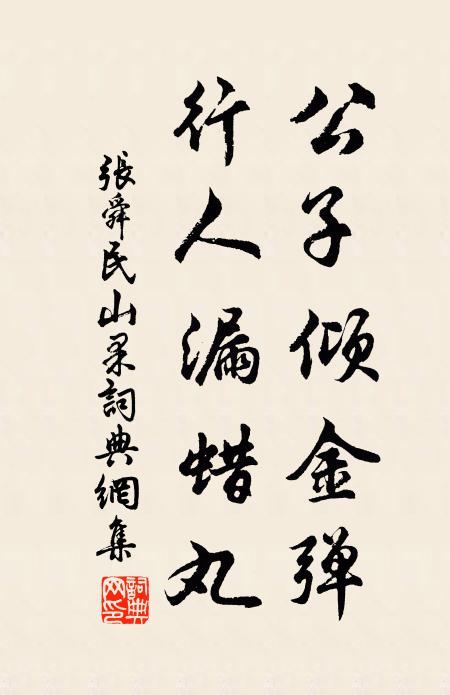 公子倾金弹
行人漏蜡丸
張舜民山果詞典網集
詞典网印